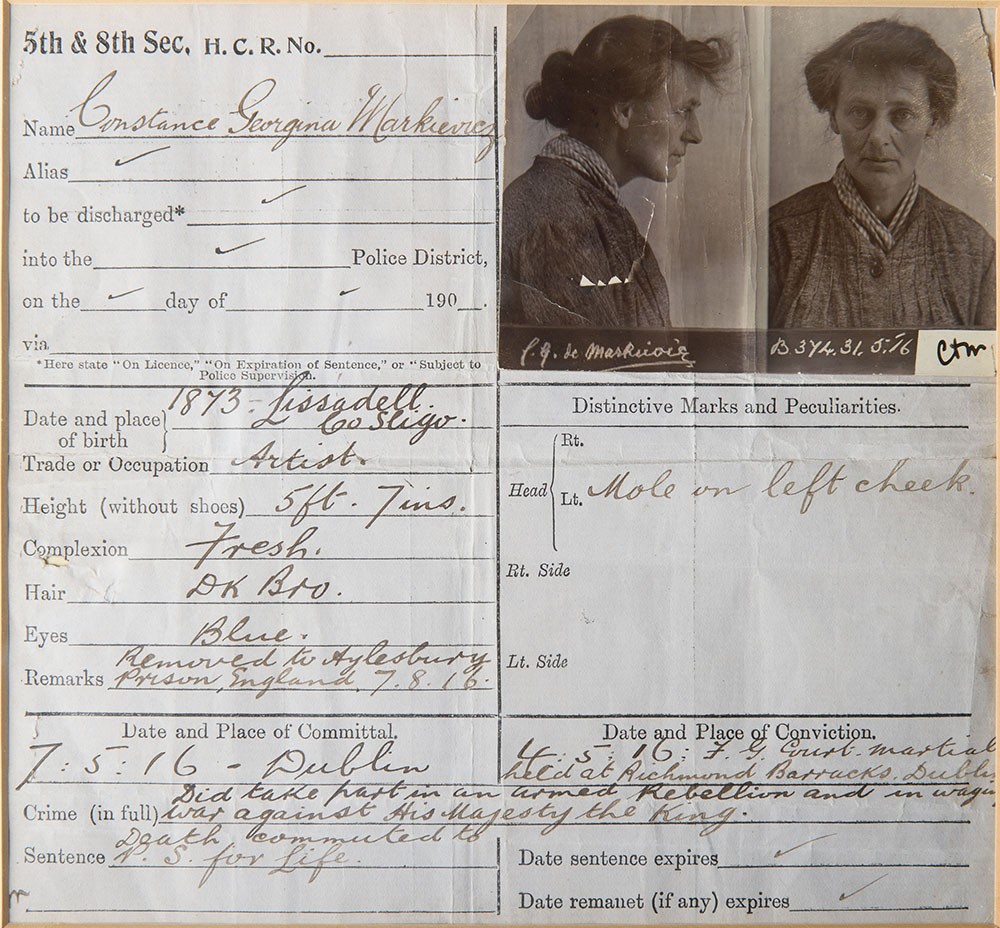 5th & 8th Sec. H. C. R. No.
Name Constance Georgina Markievicz
Alias
to be discharged*
into the Police District,
on the day of 190 .
via
*Here state "On Licence," "On Expiration of Sentence," or "Subject to
Police Supervision.
C. G. de Markievicz B 374. 31. 5. 16
Date and place of birth 1873 - Lissadell.
Co Sligo.
Trade or Occupation Artist.
Height (without shoes) 5ft. 7ins.
Complexion Fresh.
Hair DK Bro.
Eyes Blue.
Remarks Removed to Aylesbury
Prison, England, 7. 8. 16.
Distinctive Marks and Peculiarities.
Head Rt.
Lt. Mole on left cheek.
Rt. Side
Lt. Side
Date and Place of Committal.
7 : 5 : 16 - Dublin
Date and Place of Conviction.
4 : 5 : 16 : F. G. Court-martial
held at Richmond Barracks, Dublin
Crime (in full) Did take part in an armed Rebellion and in
war against His Majesty the King.
Sentence Death commuted to
P. S. for Life.
Date sentence expires
Date remanet (if any) expires